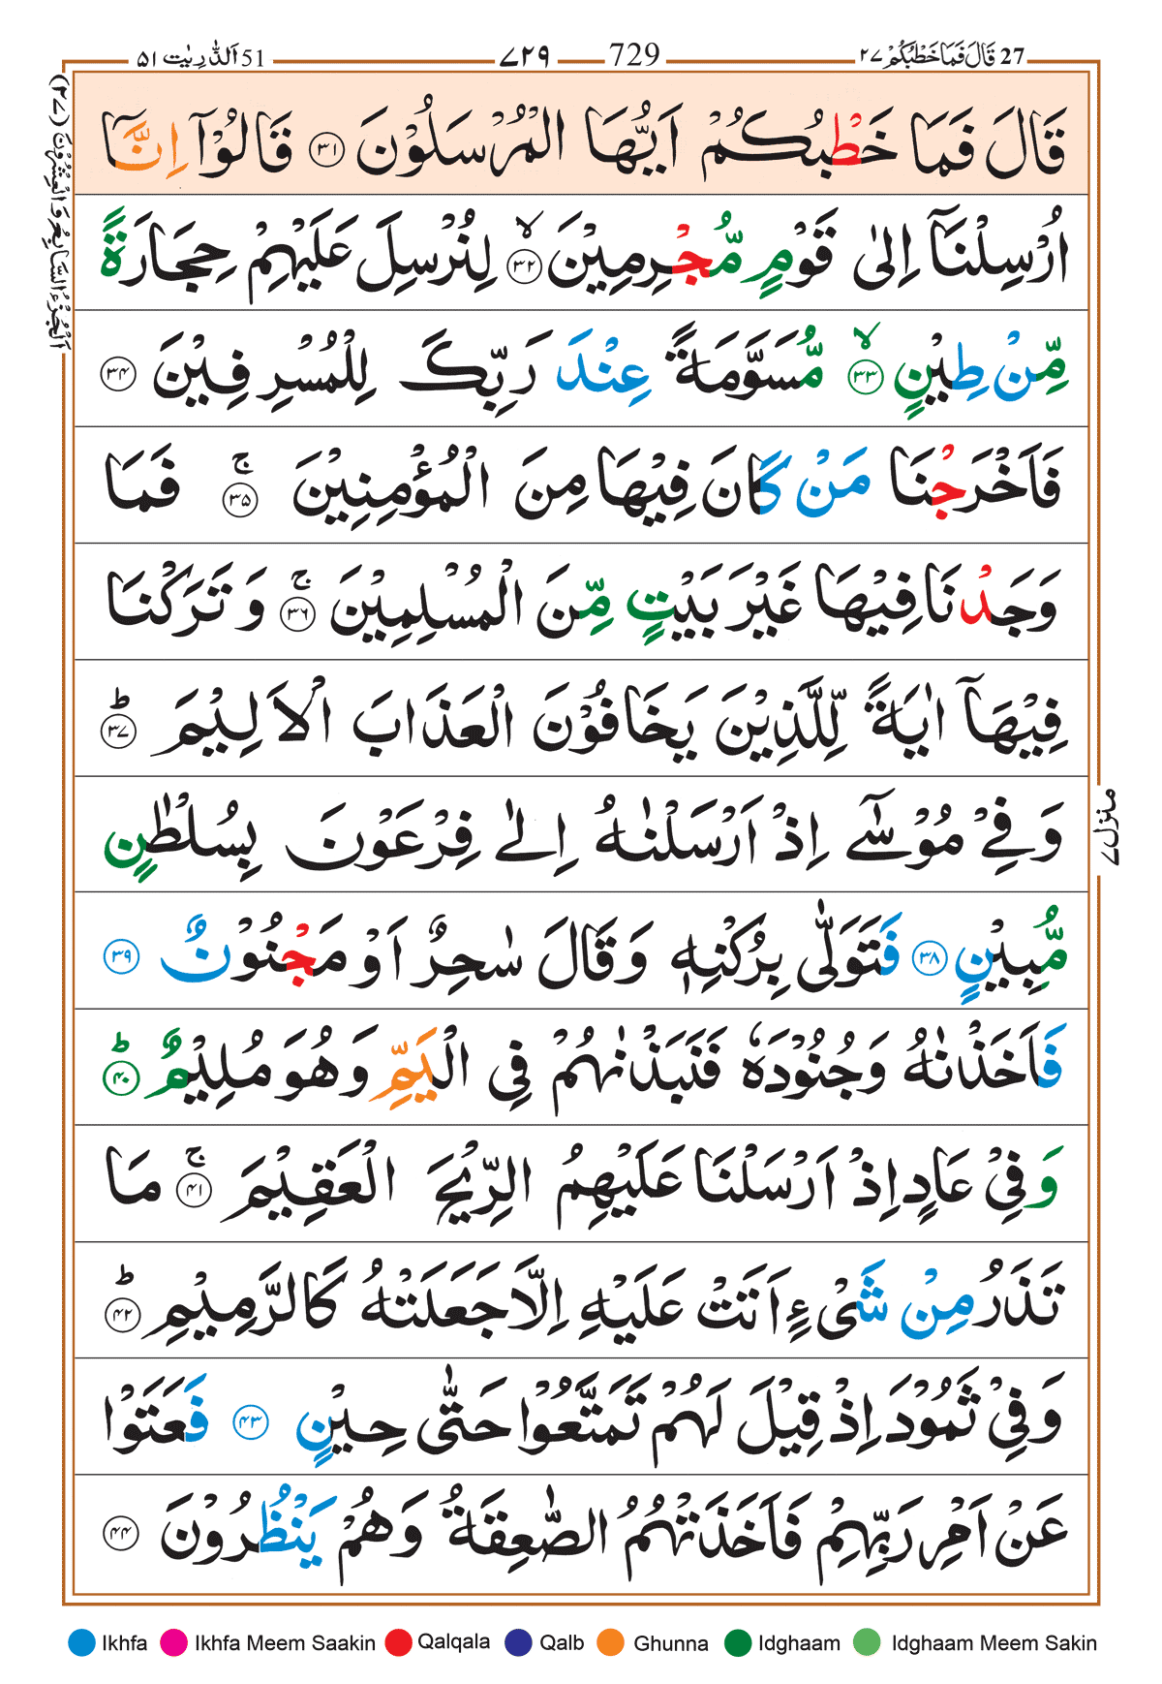 27 قَالَ فَمَا خَطْبُكُمْ ٢٧
729 ٧٢٩
51 اَلذّٰرِیٰت ٥١
اَلْجُزْءُ السَّابِعُ وَالْعِشْرُوْنَ (٢٧)
قَالَ فَمَا خَطْبُكُمْ اَيُّهَا الْمُرْسَلُوْنَ ٣١ قَالُوْٓا اِنَّآ
اُرْسِلْنَآ اِلٰى قَوْمٍ مُّجْرِمِيْنَ ۙ ٣٢ لِنُرْسِلَ عَلَيْهِمْ حِجَارَةً
مِّنْ طِيْنٍ ۙ ٣٣ مُّسَوَّمَةً عِنْدَ رَبِّكَ لِلْمُسْرِفِيْنَ ٣٤
فَاَخْرَجْنَا مَنْ كَانَ فِيْهَا مِنَ الْمُؤْمِنِيْنَ ۚ ٣٥ فَمَا
وَجَدْنَا فِيْهَا غَيْرَ بَيْتٍ مِّنَ الْمُسْلِمِيْنَ ۚ ٣٦ وَ تَرَكْنَا
فِيْهَآ اٰيَةً لِّلَّذِيْنَ يَخَافُوْنَ الْعَذَابَ الْاَلِيْمَ ؕ ٣٧
وَفِيْ مُوْسٰٓى اِذْ اَرْسَلْنٰهُ اِلٰى فِرْعَوْنَ بِسُلْطٰنٍ
مُّبِيْنٍ ٣٨ فَتَوَلّٰى بِرُكْنِهٖ وَقَالَ سٰحِرٌ اَوْ مَجْنُوْنٌ ٣٩
فَاَخَذْنٰهُ وَجُنُوْدَهٗ فَنَبَذْنٰهُمْ فِى الْيَمِّ وَهُوَ مُلِيْمٌ ؕ ٤٠
وَفِيْ عَادٍ اِذْ اَرْسَلْنَا عَلَيْهِمُ الرِّيْحَ الْعَقِيْمَ ۚ ٤١ مَا
تَذَرُ مِنْ شَيْءٍ اَتَتْ عَلَيْهِ اِلَّا جَعَلَتْهُ كَالرَّمِيْمِ ؕ ٤٢
وَفِيْ ثَمُوْدَ اِذْ قِيْلَ لَهُمْ تَمَتَّعُوْا حَتّٰى حِيْنٍ ٤٣ فَعَتَوْا
عَنْ اَمْرِ رَبِّهِمْ فَاَخَذَتْهُمُ الصّٰعِقَةُ وَهُمْ يَنْظُرُوْنَ ٤٤
منزل ٧
Ikhfa Ikhfa Meem Saakin Qalqala Qalb Ghunna Idghaam Idghaam Meem Sakin